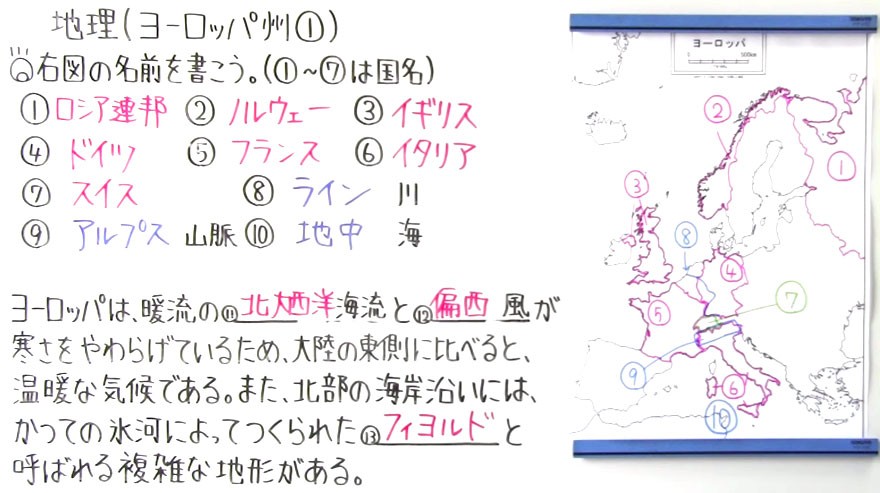 地理(ヨーロッパ州①)
右図の名前を書こう。(①~⑦は国名)
①ロシア連邦 ②ノルウェー ③イギリス
④ドイツ ⑤フランス ⑥イタリア
⑦スイス ⑧ライン川
⑨アルプス山脈 ⑩地中海
ヨーロッパは、暖流の⑪北大西洋海流と⑫偏西風が
寒さをやわらげているため、大陸の東側に比べると、
温暖な気候である。また、北部の海岸沿いには、
かつての氷河によってつくられた⑬フィヨルドと
呼ばれる複雑な地形がある。
ヨーロッパ
0 500km
②
①
③
⑧
④
⑤
⑦
⑨
⑥
⑩